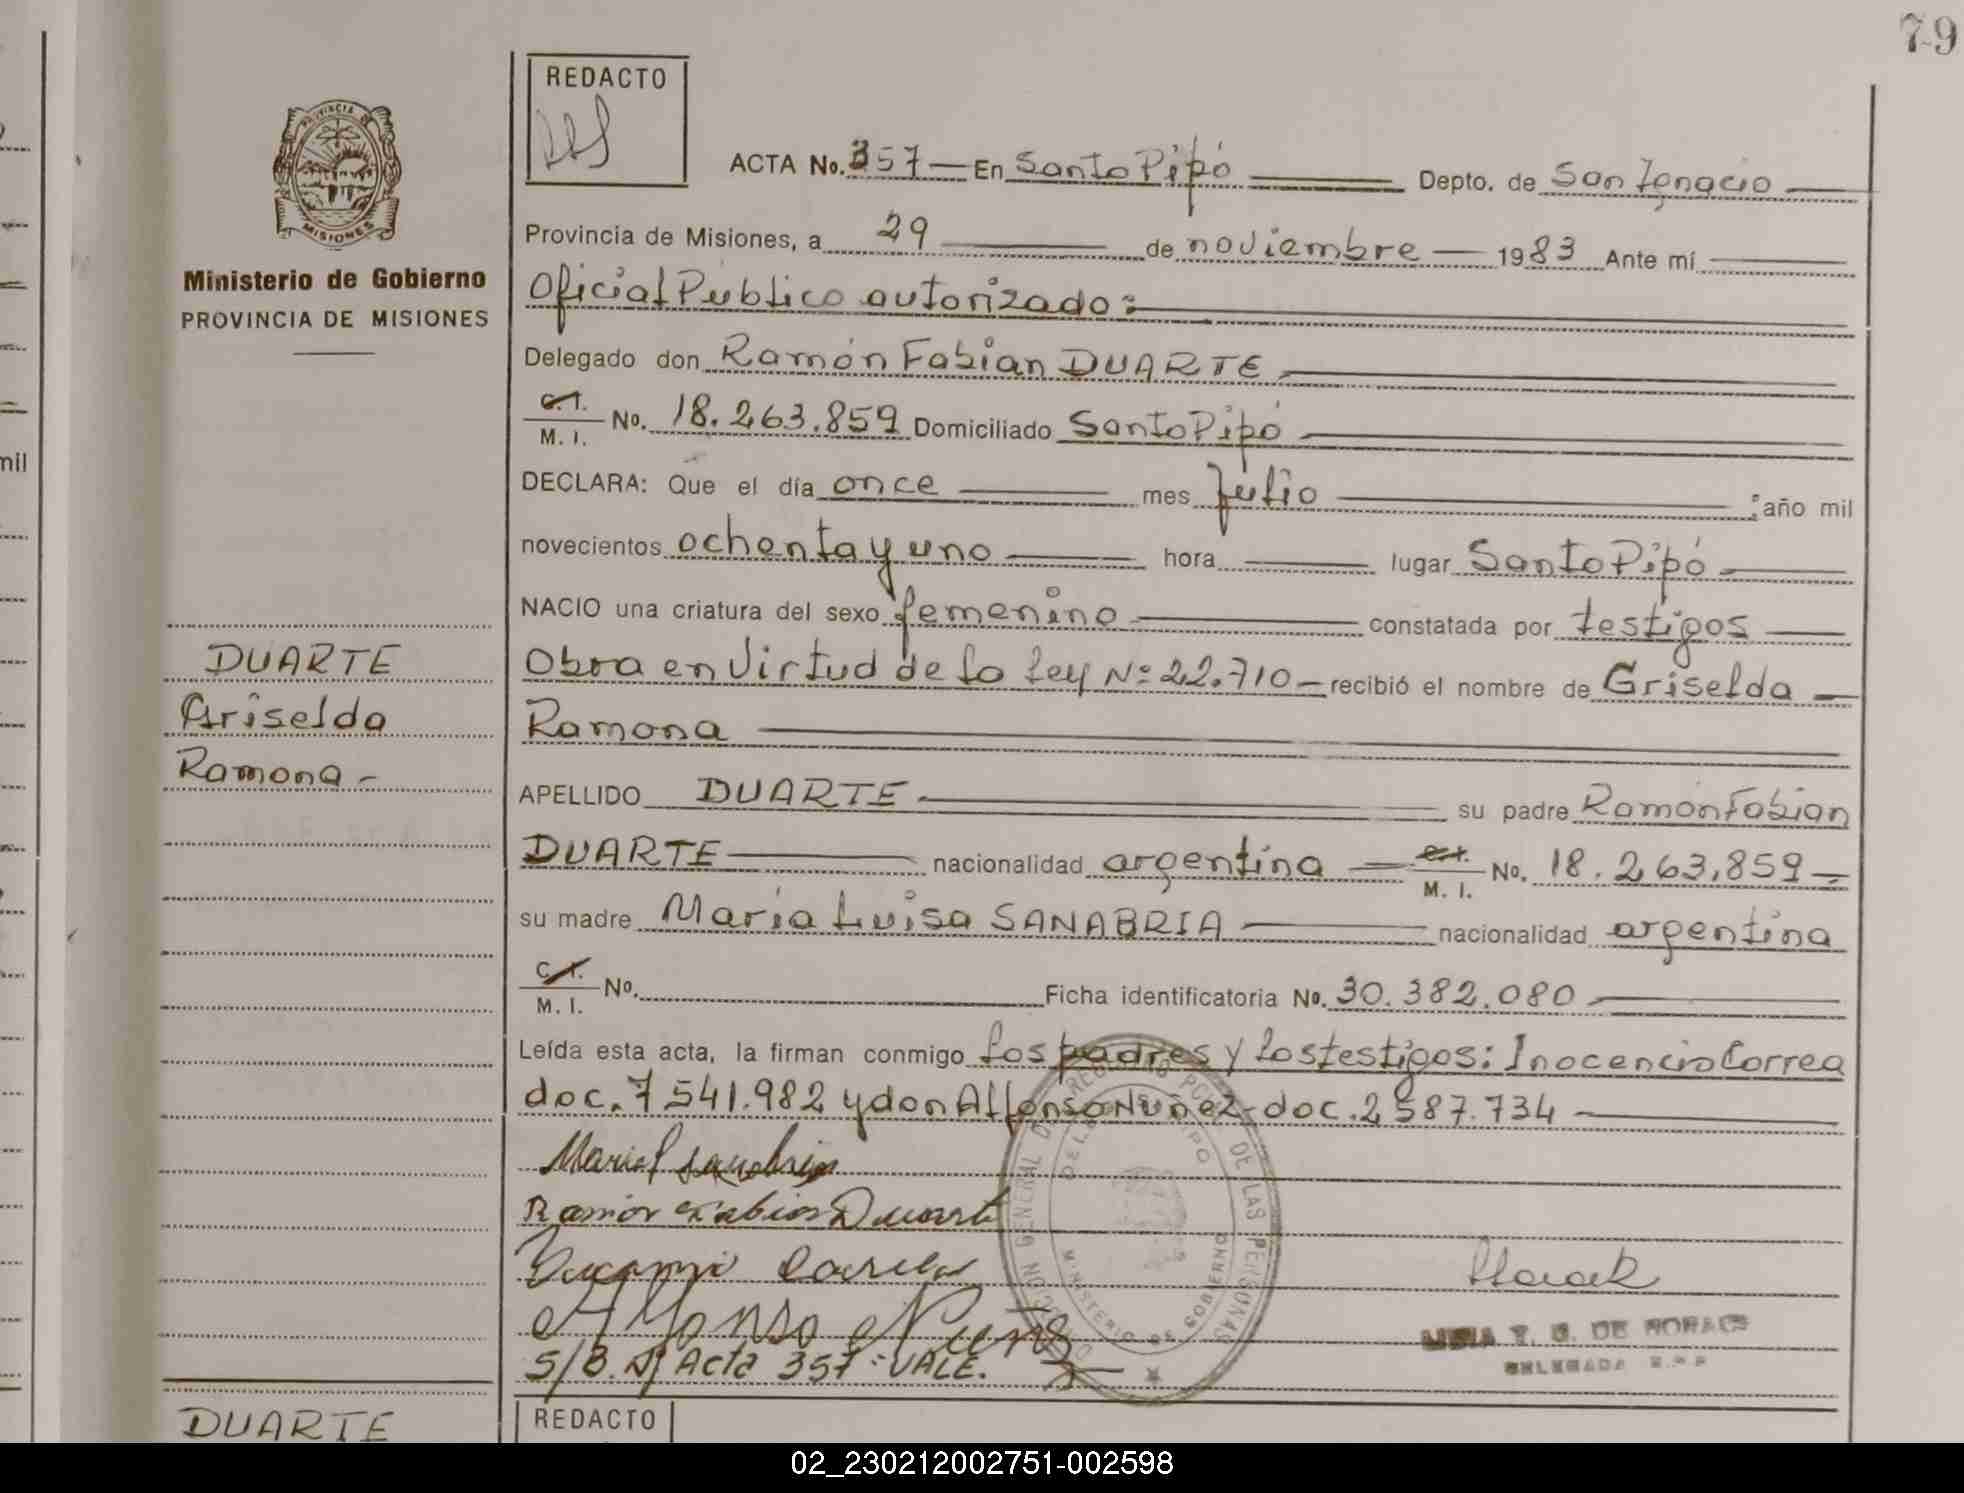 79
REDACTO
PROVINCIA DE
MISIONES
Ministerio de Gobierno
PROVINCIA DE MISIONES
ACTA No. 357 — En Santo Pipó — Depto. de San Ignacio —
Provincia de Misiones, a 29 — de noviembre — 1983 Ante mí —
Oficial Público autorizado: —
Delegado don Ramón Fabian DUARTE —
C.I. / M. I. No. 18.263.859 Domiciliado Santo Pipó —
DECLARA: Que el día once — mes Julio — : año mil
novecientos ochenta y uno — hora — lugar Santo Pipó —
NACIO una criatura del sexo femenino — constatada por testigos —
Obra en virtud de la ley Nº 22.710 — recibió el nombre de Griselda —
Ramona —
APELLIDO DUARTE — su padre Ramón Fabian
DUARTE — nacionalidad argentina — C.I. / M. I. No. 18.263.859 —
su madre María Luisa SANABRIA — nacionalidad argentina
C.I. / M. I. No. Ficha identificatoria No. 30.382.080 —
Leída esta acta, la firman conmigo los padres y los testigos: Inocencio Correa
doc. 7541.982 y don Alfonso Nuñez - doc. 2587.734 —
DUARTE
Griselda
Ramona -
Ramón Fabian Duarte
Alfonso Nuñez
S/B. Nº Acta 357: VALE.
DIRECCION GENERAL DEL REGISTRO PCIAL. DE LAS PERSONAS
MINISTERIO DE GOBIERNO
DE MORAES
DELEGADA
DUARTE
REDACTO
mil
02_230212002751-002598